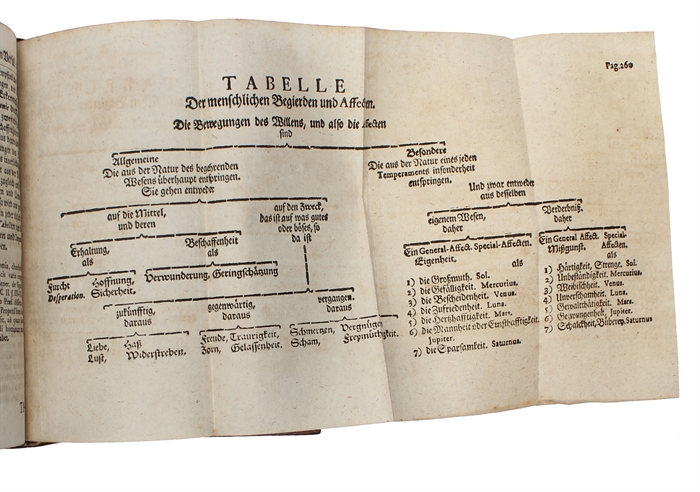 Pag. 260
TABELLE
Der menschlichen Begierden und Affecten.
Die Bewegungen des Willens, und also die Affecten
sind
Allgemeine
Die aus der Natur des begehrenden
Wesens überhaupt entspringen.
Sie gehen entweder
Besondere
Die aus der Natur eines jeden
Temperaments insonderheit
entspringen.
Und zwar entweder
aus desselben
auf die Mittel,
und deren
auf den Zweck,
das ist auf was gutes
oder böses, so
da ist
eigenem Wesen,
daher
Verderbniß.
daher
Erhaltung,
als
Beschaffenheit
als
Furcht Hoffnung,
Desperation. Sicherheit.
Verwunderung, Geringschätzung
zukünfftig,
daraus
gegenwärtig,
daraus
vergangen.
daraus
Liebe, Haß
Lust, Widerstreben.
Freude, Traurigkeit,
Zorn, Gelassenheit.
Schmertzen, Vergnügen
Scham, Freymüthigkeit.
Ein General-Affect. Special-Affecten.
Eigenheit. als
1) die Großmuth. Sol.
2) die Gefälligkeit. Mercurius.
3) die Bescheidenheit. Venus.
4) die Zufriedenheit. Luna.
5) die Hertzhafftigkeit. Mars.
6) die Mannheit oder Ernsthafftigkeit.
Jupiter.
7) die Sparsamkeit. Saturnus.
Ein General-Affect. Special-
Mißgunst. Affecten.
als
1) Härtigkeit, Strenge. Sol.
2) Unbeständigkeit. Mercurius.
3) Weibischheit. Venus.
4) Unverschamheit. Luna.
5) Gewaltthätigkeit. Mars.
6) Gezwungenheit. Jupiter.
7) Schalckheit, Büberey. Saturnus